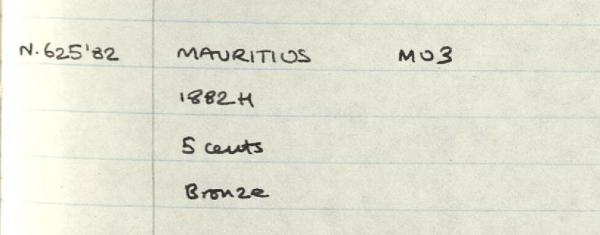 N.625'82 MAURITIUS MU3
1882H
5 cents
Bronze